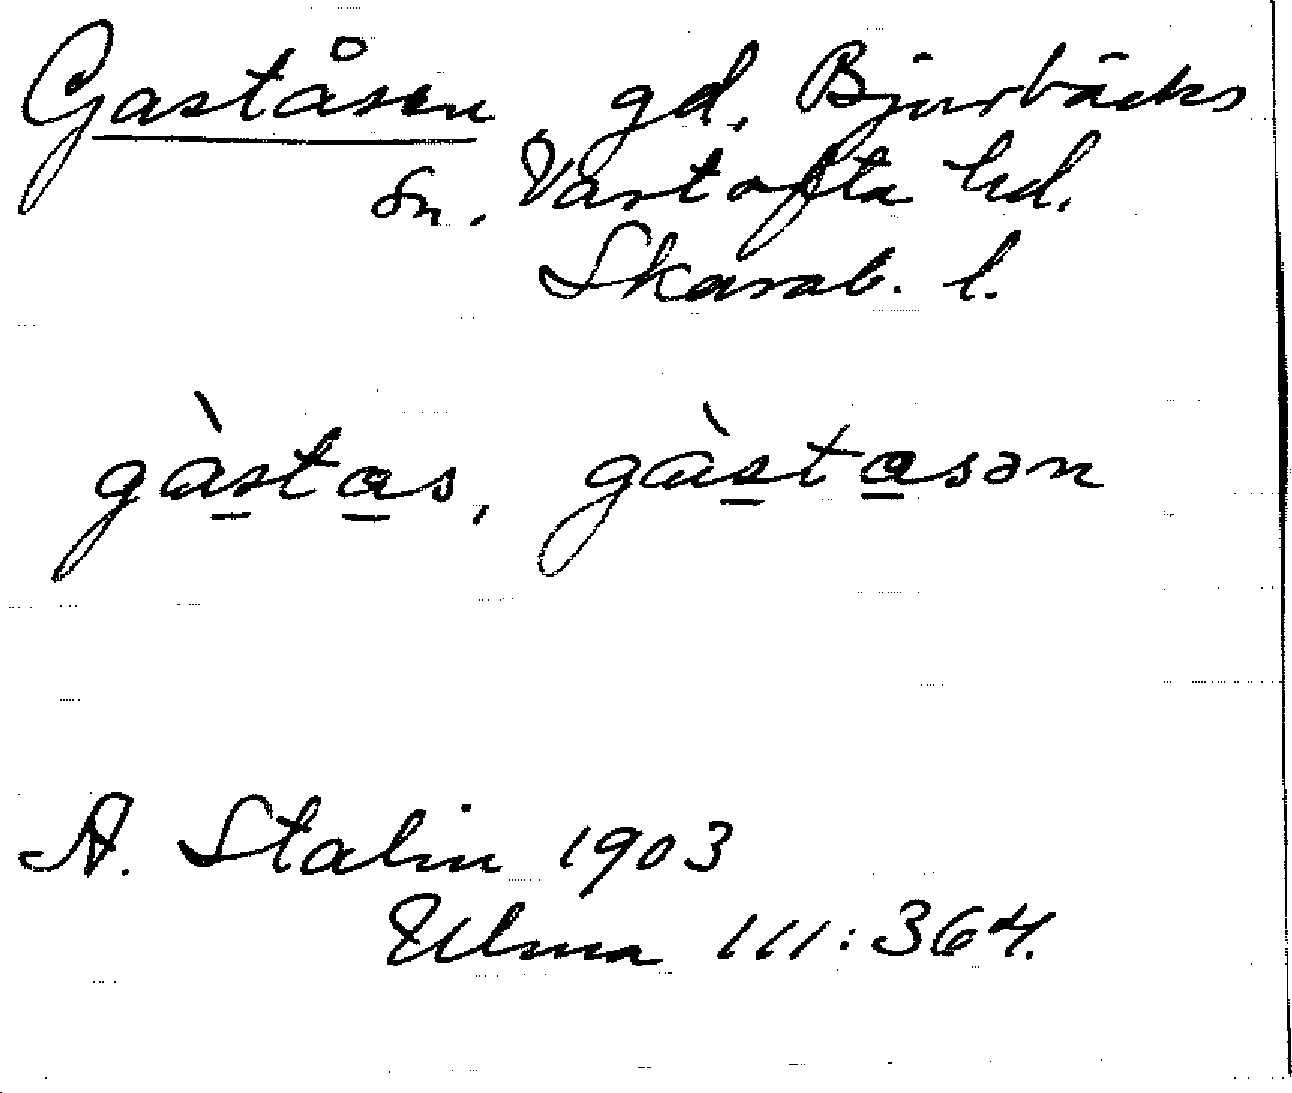 Gaståsen gd, Bjurbäcks
sn. Vartofta hd.
Skarab. l.
gàstas, gàstasən
A. Stalin 1903
Ulma 111:364.